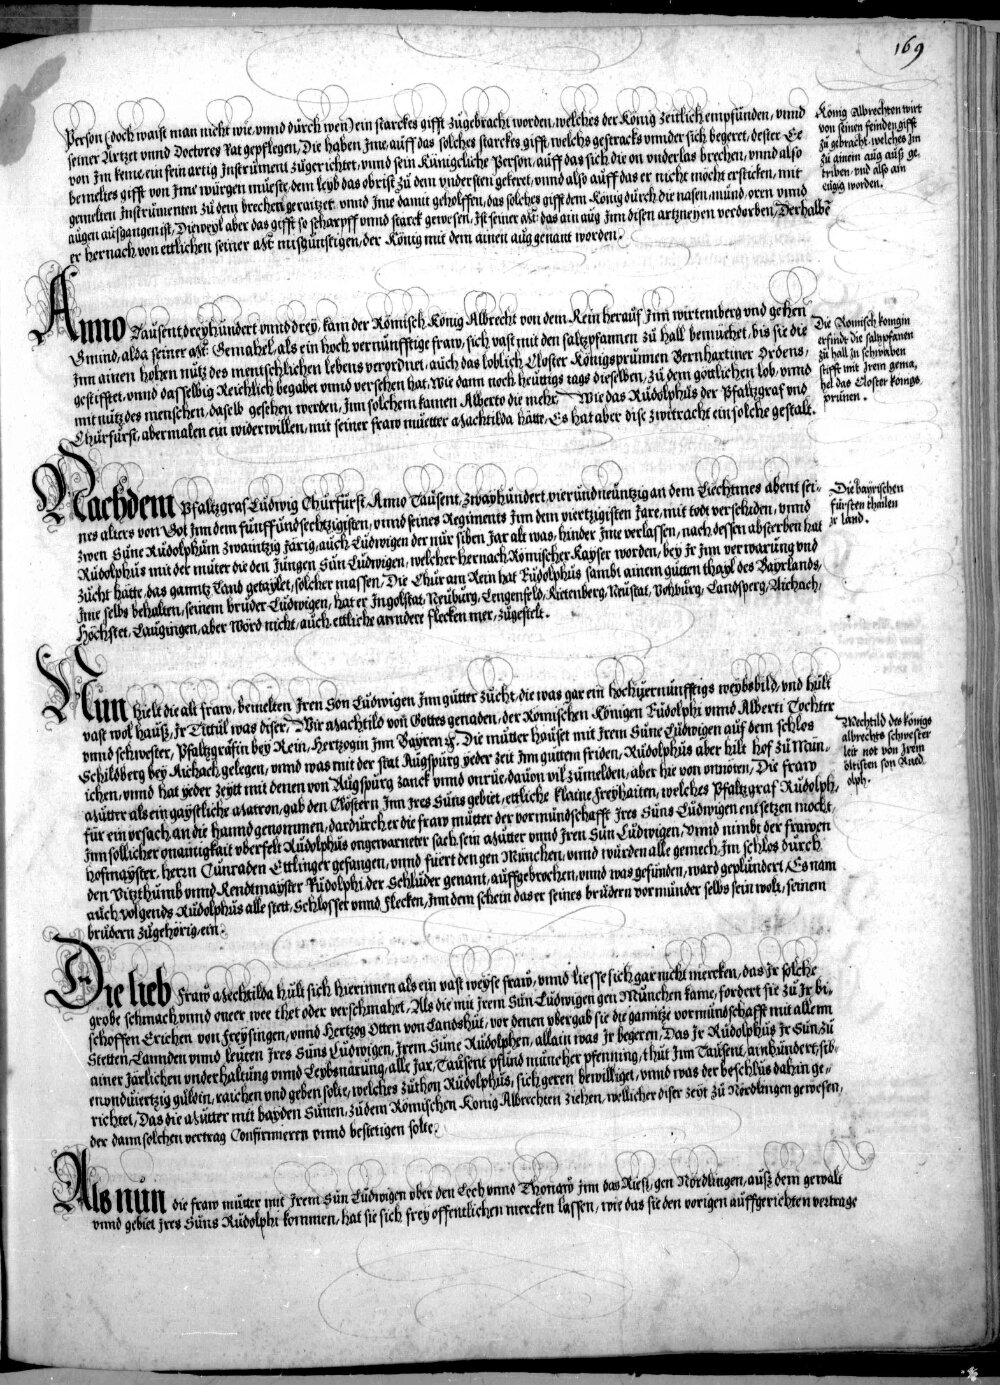 169
Person (doch waist man nicht wie vnnd durch wen) ein starckes gifft zugebracht worden, welches der König zeitlich empfunden, vnnd
seiner Artzet vnnd Doctores Rat gepflegen, Die haben Jme auff das solches starckes gifft, welchs gestracks vnnder sich begeret, dester Ee
von Jm keme, ein sein artig Jnstrument zugerichtet, vnnd sein Künigcliche Person, auff das sich die on vnderlas brechen, vnnd also
bemeltes gifft von Jme würgen müeste, dem leyb das obrist zu dem vndersten gekert, vnnd also auff das er nicht möcht ersticken, mit
gemelten Jnstrumenten zu dem brechen geraitzet, vnnd Jme damit geholffen, das solches gifft dem König durch die nasen, mund, oren vnnd
augen ausgangen ist, Dieweyl aber das gifft so scharpff vnnd starck gewesen, Jst seiner Mt: das ain aug Jnn disen artzneyen verdorben, Derhalbe
er hernach von ettlichen seiner Mt: misgünstigen, der König mit dem ainen aug genant worden.
König Albrechten wirt
von seinen feinden gifft
zu gebracht, welches Jm
zu ainem aug auß ge,
triben, vnd also ain
eügig worden.
Anno Tausent dreyhundert vnnd drey, kam der Römisch König Albrecht von dem Rein herauf Jnn wirtemberg vnd gehen
Gmind, alda seiner Mt: Gemahel, als ein hoch vernünfftige fraw, sich vast mit den saltzpfannen zu hall bemüehet, bis sie die
Jnn ainen hohen nutz des menschlichen lebens verordnet, auch das loblich Closter Königsprünnen Bernhartiner Ordens,
gestifftet, vnnd dasselbig Reichlich begabet vnnd versehen hat, Wie dann noch heüttigs tags dieselben, zu dem göttlichen lob, vnnd
mit nutz des menschen, daselb gesehen werden, Jnn solchem kamen Alberto die mehr, Wie das Rudolphus der Pfaltzgraf vnd
Churfürst, abermalen ein widerwillen, mit seiner fraw muetter Machtilda hätte, Es hat aber dise zwitracht ein solche gestalt.
Die Romisch konigin
erfindt die saltzpfanen
zu hall zu schwaben
stifft mit Jrem gema,
hel das Closter konigs,
prünen.
Nachdem Pfaltzgraf Ludwig Churfürst Anno Tausent, zwayhundert, vierundneüntzig an dem Liechtmes abent sei-
nes alters von Got Jnn dem fünffundsechtzigisten, vnnd seines Regiments Jnn dem viertzigisten Jare, mit todt verschiden, vnnd
zwen Süne Rudolphum zwaintzig Järig, auch Ludwigen der nur siben Jar alt was, hinder Jme verlassen, nach dessen absterben hat
Rudolphus mit der müter die den Jungen Sün Ludwigen, welcher hernach Römischer Kayser worden, bey Jr Jnn verwarung vnd
zücht hätte, das ganntz Land getaylet, solcher massen, Die Chur am Rein hat Rudolphus sambt ainem gutten thayl des Bayrlands,
Jme selbs behalten, seinem bruder Ludwigen, hat er Ingolstat, Neuburg, Lengenfeld, Rietenberg, Neustat, Vohburg, Landsperg, Aichach,
Höchstet, Laugingen, aber Wörd nicht, auch ettliche anndere flecken mer, zugestelt.
Die bayrischen
fürsten thailen
jr land.
Nun hielt die alt fraw, bemelten Jren Son Ludwigen Jnn gutter zucht, die was gar ein hochuernünfftigs weybsbild, vnd hült
vast wol hauß, Jr Tittul was diser, Wir Machtild von Gottes genaden, der Römischen Königen Rudolphi vnnd Alberti Tochter
vnnd schwester, Pfaltzgräfin bey Rein, Hertzogin Jnn Bayren etc. Die mutter hauset mit Jrem Süne Ludwigen auf dem schlos
Schildberg bey Aichach gelegen, vnnd was mit der stat Augspurg yeder zeit Jnn guttem friden, Rudolphus aber hilt hof zu Mün-
ichen, vnnd hat yeder zeytt mit denen von Augspurg zanck vnnd onrue, dauon vil zumelden, aber hie von onnöten, Die fraw
Mutter als ein gaystliche Matron, gab den Clöstern Jnn Jres Süns gebiet, ettliche klaine freyhaiten, welches Pfaltzgraf Rudolph,
für ein vrsach an die hannd genommen, dardurch er die fraw mutter der vormundschafft Jres Süns Ludwigen entsetzen möcht,
Jnn sollicher onainigkait vberfelt Rudolphus ongewarneter sach, sein Mutter vnnd Jren Sun Ludwigen, vnnd nimbt der frawen
hofmayster, herrn Cunraden Ettlinger gefangen, vnnd füert den gen München, vnnd wurden alle gemech Jm schlos durch
den Vitzthumb vnnd Rendtmayster Rudolphi der Schluder genant, auffgebrochen, vnnd was gefunden, ward geplündert, Es nam
auch volgends Rudolphus alle stett, Schlosser vnnd flecken, Jnn dem schein das er seines brudern vormunder selbs sein wolt, seinem
brudern zugehörig, ein.
Mechtild des königs
albrechts schwester
leit not von Jrem
öltisten son Rud,
olph.
Die lieb Fraw Mechtilda hült sich hierinnen als ein vast weyse fraw, vnnd liesse sich gar nicht mercken, das Jr solche
grobe schmach vnnd oneer wee thet oder verschmahet, Als die mit Jrem Sun Ludwigen gen München kame, fordert sie zu Jr bi,
schoffen Erichen von Freysingen, vnnd Hertzog Otten von Landshut, vor denen vbergab sie die ganntze vormundschafft mit allenn
Stetten, Lannden vnnd leuten Jres Süns Ludwigen, Jrem Süne Rudolphen, allain was Jr begeren, Das Jr Rudolphus Jr Sun, zu
ainer Järlichen vnderhaltung vnnd Leybsnarung, alle Jar, Tausent pfund müncher pfenning, thut Jnn Tausent, ainhundert, sib-
enundviertzig guldin, raichen vnd geben solte, welches zuthon Rudolphus, sich geren bewilliget, vnnd was der beschlus dahin ge,,
richtet, Das die Mutter mit bayden Sünen, zu dem Römischen Konig Albrechten ziehen, wellicher diser zeyt zu Nördlingen gewesen,
der dann solchen vertrag Confirmieren vnnd bestetigen solte.
Als nun die fraw mutter mit Jrem Sun Ludwigen ober den Lech vnnd Thonaw Jnn das Riesz, gen Nördlingen, auß dem gewalt
vnnd gebiet Jres Süns Rudolphi kommen, hat sie sich frey offentlichen mercken lassen, wie das sie den vorigen auffgerichten vertrage